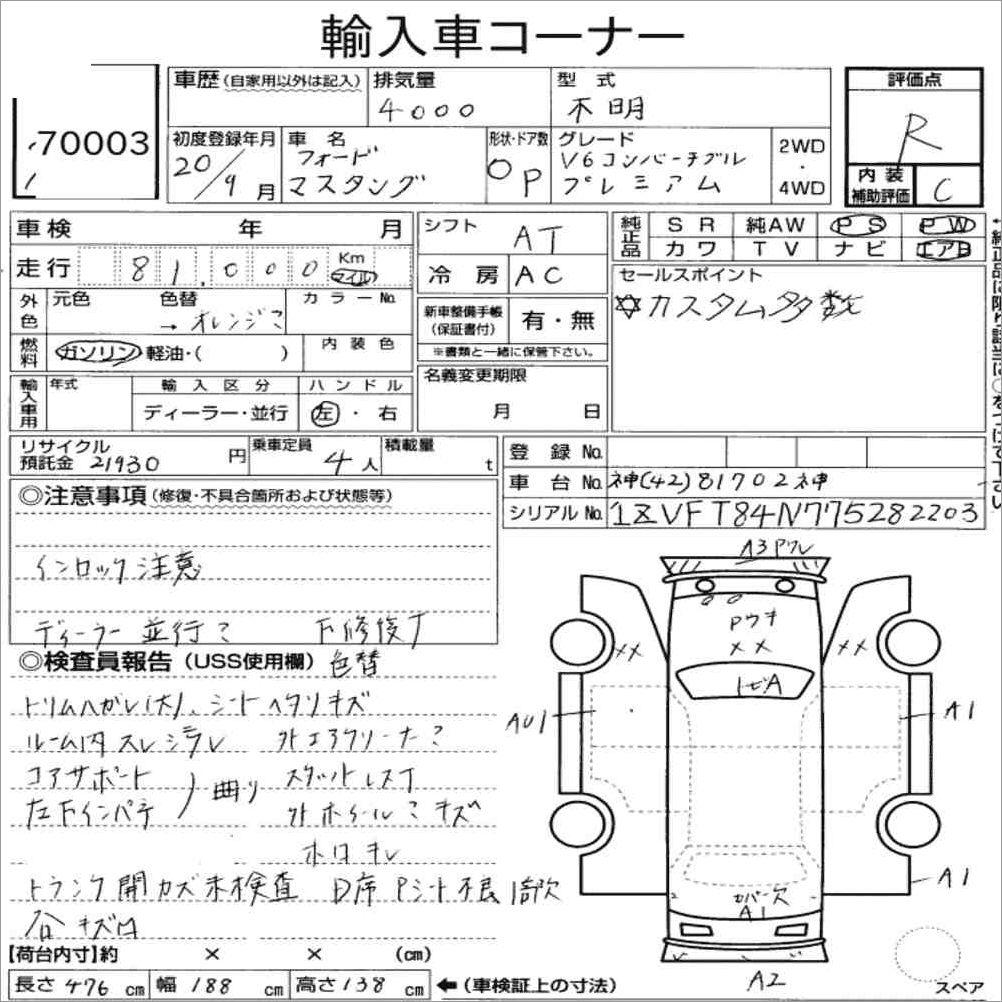 輸入車コーナー
70003
車歴(自家用以外は記入) 排気量 4000 型式 不明
初度登録年月 20/9月 車名 フォード マスタング 形状・ドア数 OP グレード V6コンバーチブル プレミアム 2WD・4WD
評価点 R
内装補助評価 C
車検 年 月
走行 81,000 Km マイル
外色 元色 色替 → オレンジ? カラーNo.
燃料 ガソリン 軽油・( ) 内装色
輸入車用 年式 輸入区分 ディーラー・並行 ハンドル 左・右
シフト AT
冷房 AC
新車整備手帳(保証書付) 有・無
※書類と一緒に保管下さい。
名義変更期限 月 日
純正品 SR 純AW PS PW
カワ TV ナビ エアB
セールスポイント
✡カスタム多数
リサイクル預託金 21930円 乗車定員 4人 積載量 t
登録No.
車台No. 神(42)81702神
シリアルNo. 1ZVFT84N775282203
◎注意事項(修復・不具合箇所および状態等)
インロック注意
ディーラー並行? 下修復丁
◎検査員報告(USS使用欄) 色替
トリムハガレ(大)、シートヘタリキズ
ルーム内スレシミ 外エアクリーナー?
コアサポート 曲り
左下インパチ
外ホイール? キズ
ホロキレ
トランク開カズ未検査 D席Pシート不良 1部欠
谷キズ凹
A3 Pワレ
Pウキ
××
トビA
××
××
AU1
A1
A1
カバー欠
A1
A2
スペア
【荷台内寸】約 × × (cm)
長さ 476 cm 幅 188 cm 高さ 138 cm ←(車検証上の寸法)